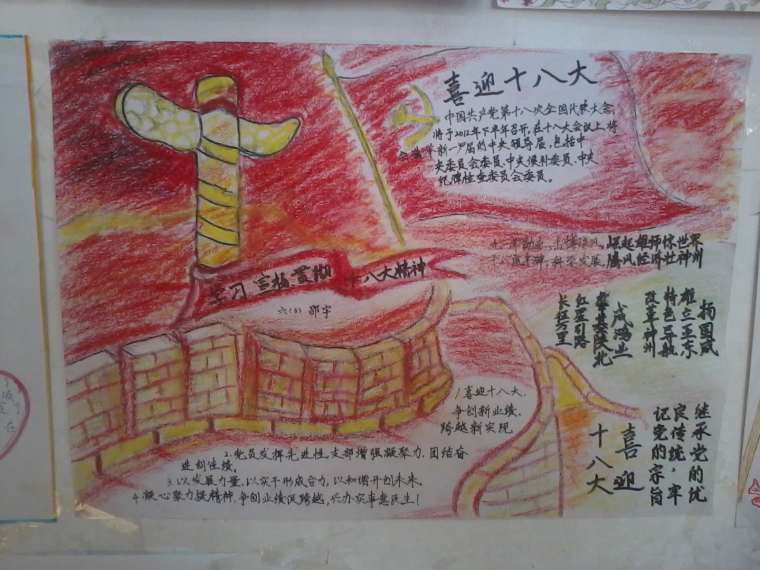 喜迎十八大
中国共产党第十八次全国代表大会,
将于2012年下半年召开,在十八大会议上,将
会选举新一届的中央领导层,包括中
央委员会委员、中央候补委员、中央
纪律检查委员会委员。
崛起雄师惊世界
科学发展,腾风经济壮神州
学习 宣扬 贯彻 十八大精神
六(5) 邵宇
扬国威
雄立亚东
特色导航
改革神州
成鸿业
陕北
红星引路
长征万里
1喜迎十八大,
争创新业绩,
跨越新实现
2.党员发挥先进性,支部增强凝聚力,团结奋
进创佳绩,
3.以发展力量,以实干形成合力,以和谐开创未来,
4.凝心聚力提精神,争创业绩促跨越,兴办实事惠民生!
继承党的优
良传统,牢
记党的宗旨
喜迎
十八大